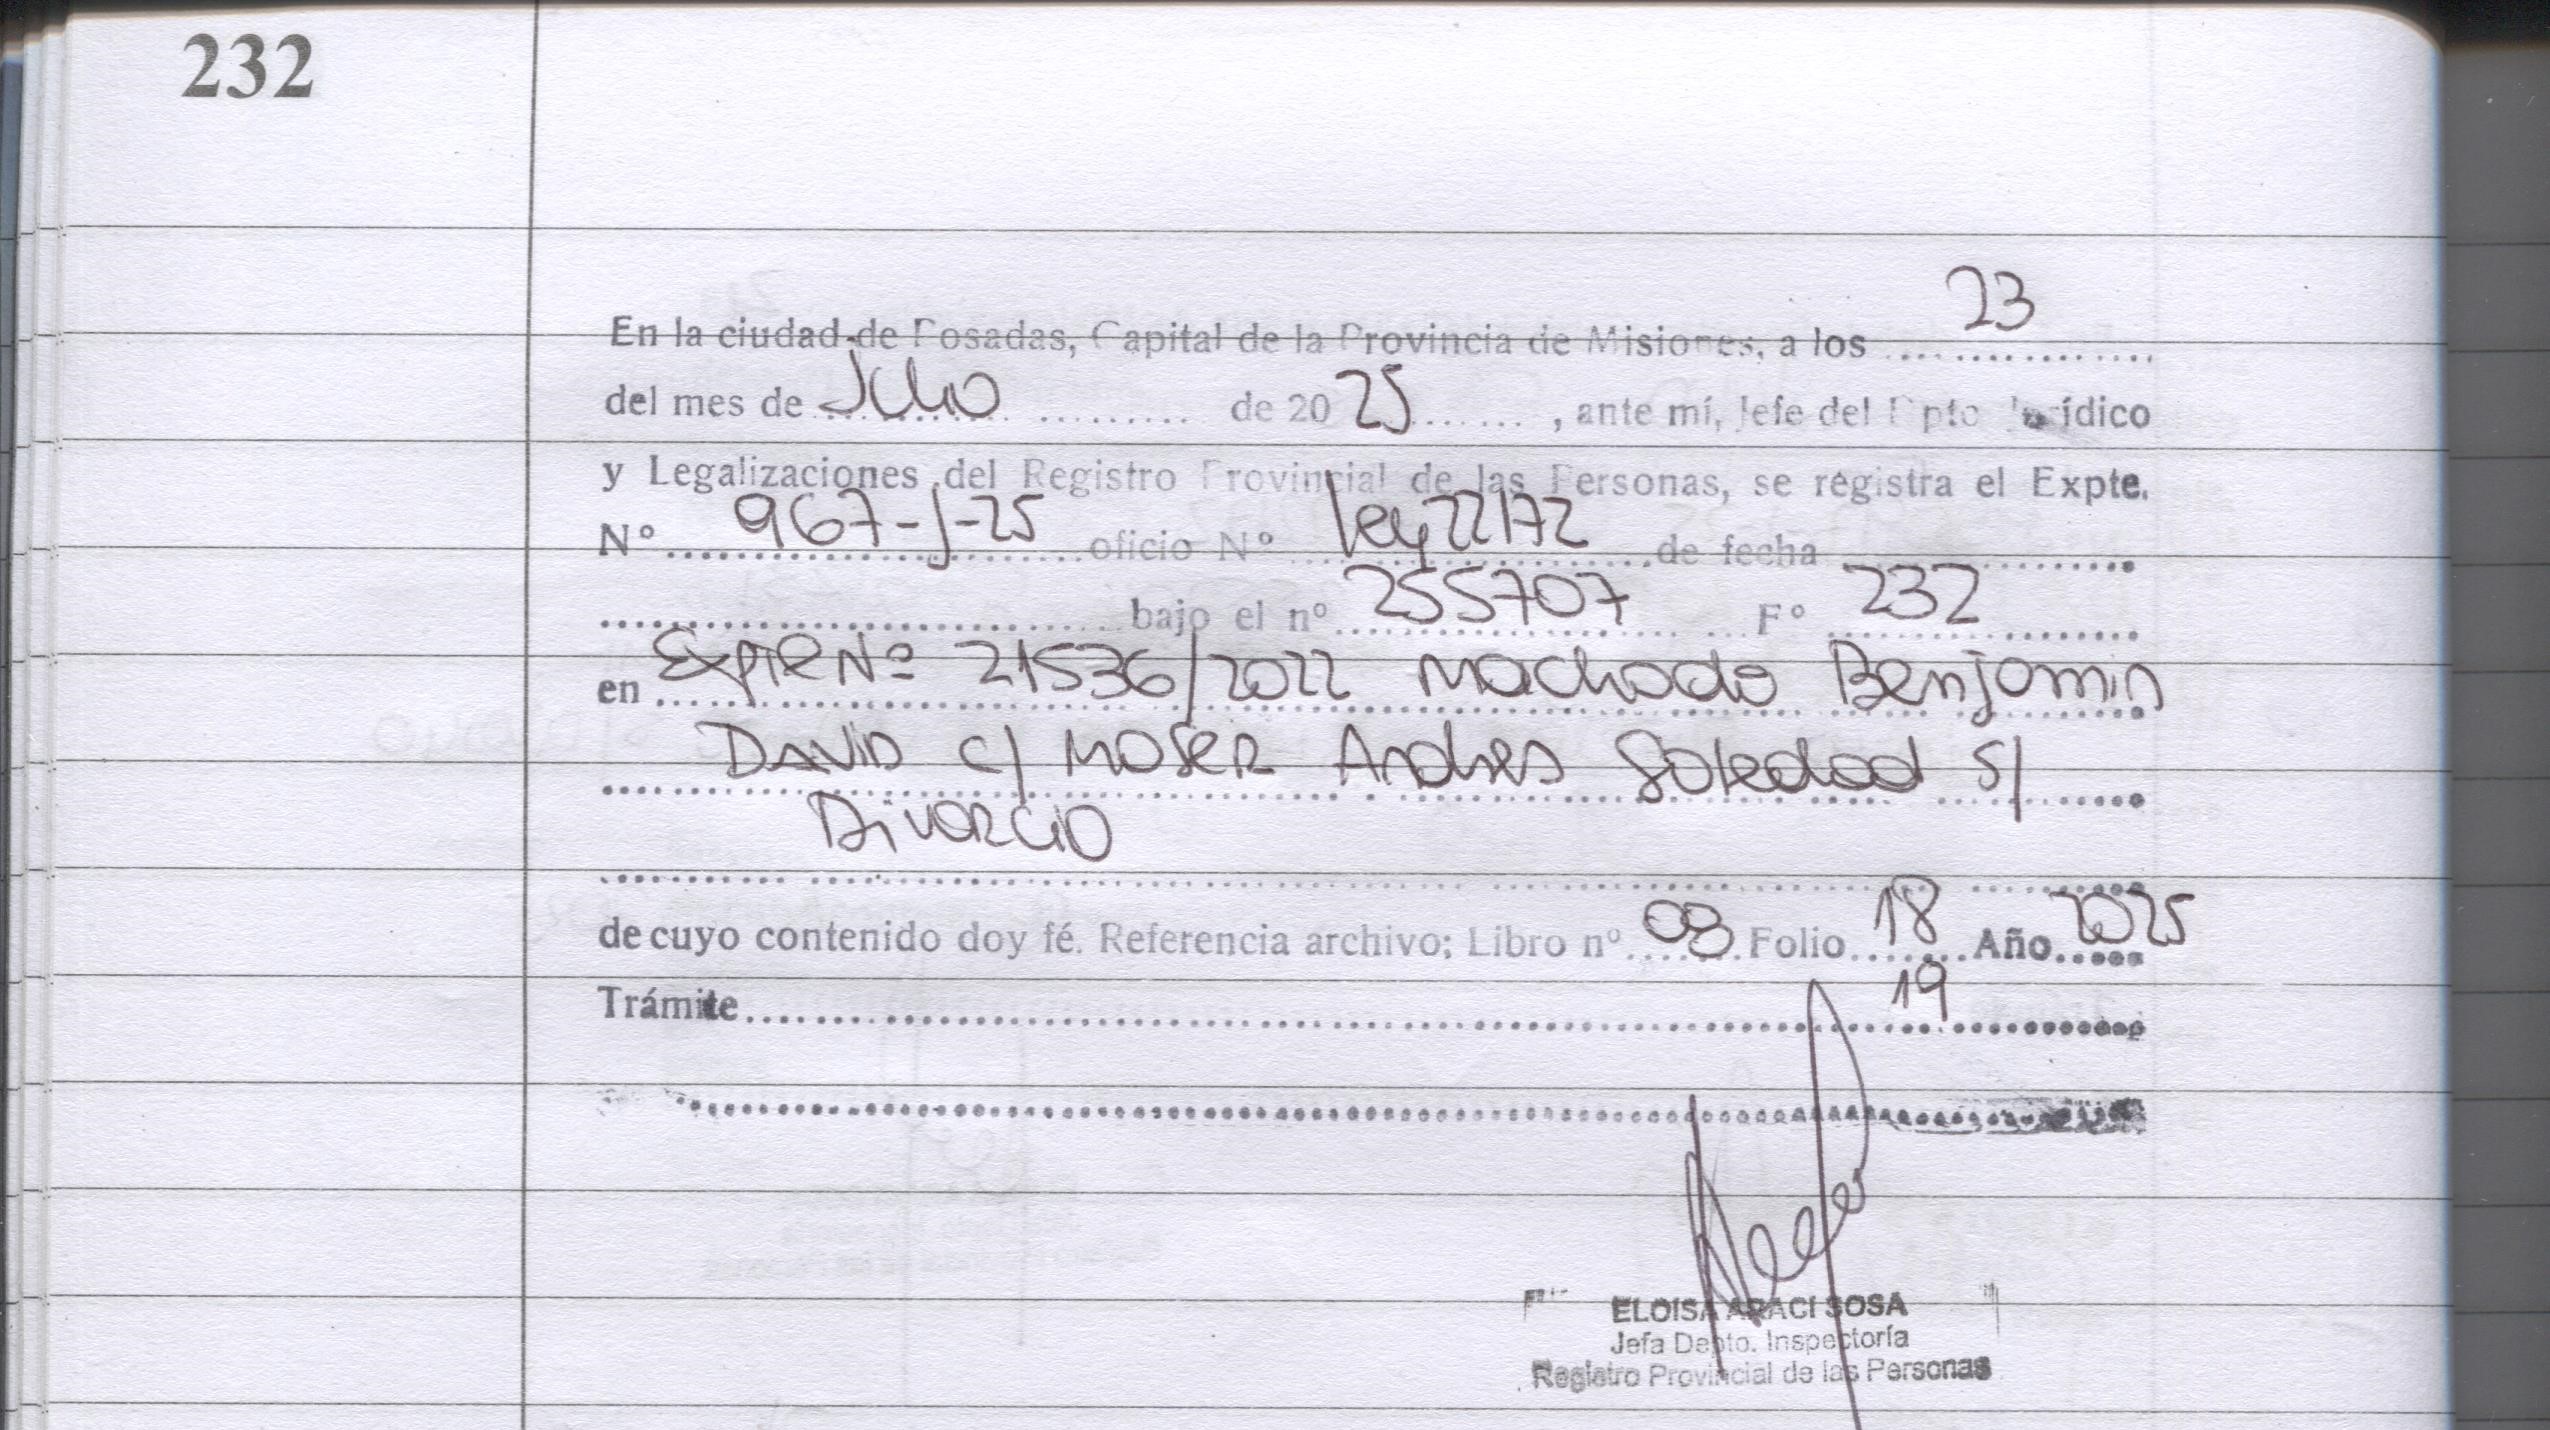 232
En la ciudad de Posadas, Capital de la Provincia de Misiones, a los 23
del mes de Julio de 20 25, ante mí, Jefe del Dpto Jurídico
y Legalizaciones del Registro Provincial de las Personas, se registra el Expte.
Nº 967-J-25 oficio Nº ley 22172 de fecha
bajo el nº 255707 Fº 232
en Expte Nº 21536/2022 Machado Benjamin
David c/ Moser Andrea Soledad s/
Divorcio
de cuyo contenido doy fé. Referencia archivo; Libro nº 08 Folio 18 Año 2025
Trámite 19
ELOISA ARACI SOSA
Jefa Depto. Inspectoría
Registro Provincial de las Personas